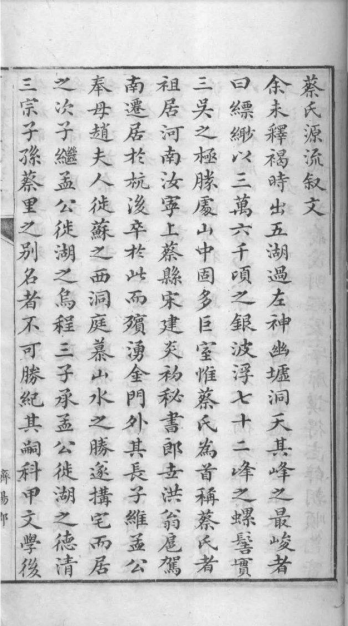 蔡氏源流叙文
余未釋褐時出五湖過左神幽墟洞天其峰之最峻者
曰縹緲以三萬六千頃之銀波浮七十二峰之螺髻實
三吳之極勝處山中固多巨室惟蔡氏為首稱蔡氏者
祖居河南汝寧上蔡縣宋建炎初秘書郎世洪翁扈駕
南遷居於杭後卒於此而殯湧金門外其長子維孟公
奉母趙夫人徙蘇之西洞庭慕山水之勝遂搆宅而居
之次子繼孟公徙湖之烏程三子承孟公徙湖之德清
三宗子孫蔡里之別名者不可勝紀其嗣科甲文學後
濟陽郡